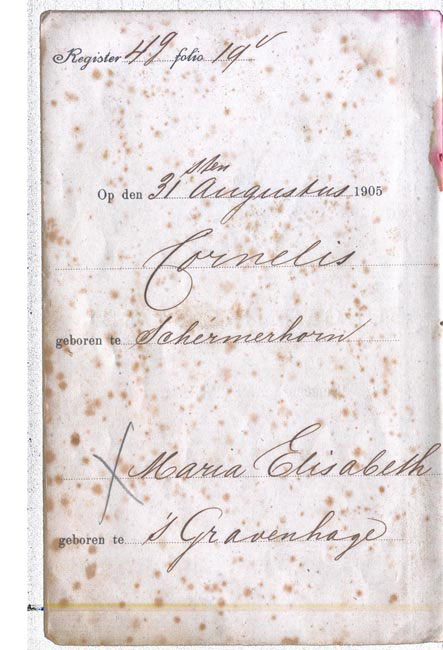 Register 49 folio 19v
Op den 31sten Augustus 1905
Cornelis
geboren te Schermerhorn
Maria Elisabeth
geboren te 's Gravenhage